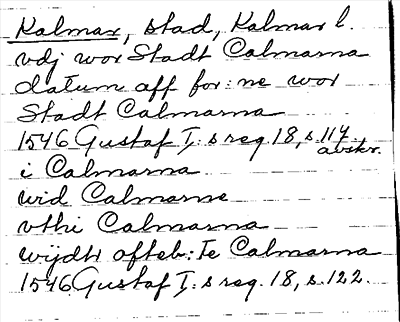 Kalmar, stad, Kalmar l.
vdj wor Stadt Calmarna
datum aff for:ne wor
Stadt Calmarna
1546 Gustaf I:s reg 18, s. 114.
avskr.
i Calmarna
wid Calmarne
vthi Calmarna
wijdh ofteb:te Calmarna
1546 Gustaf I:s reg. 18, s. 122.